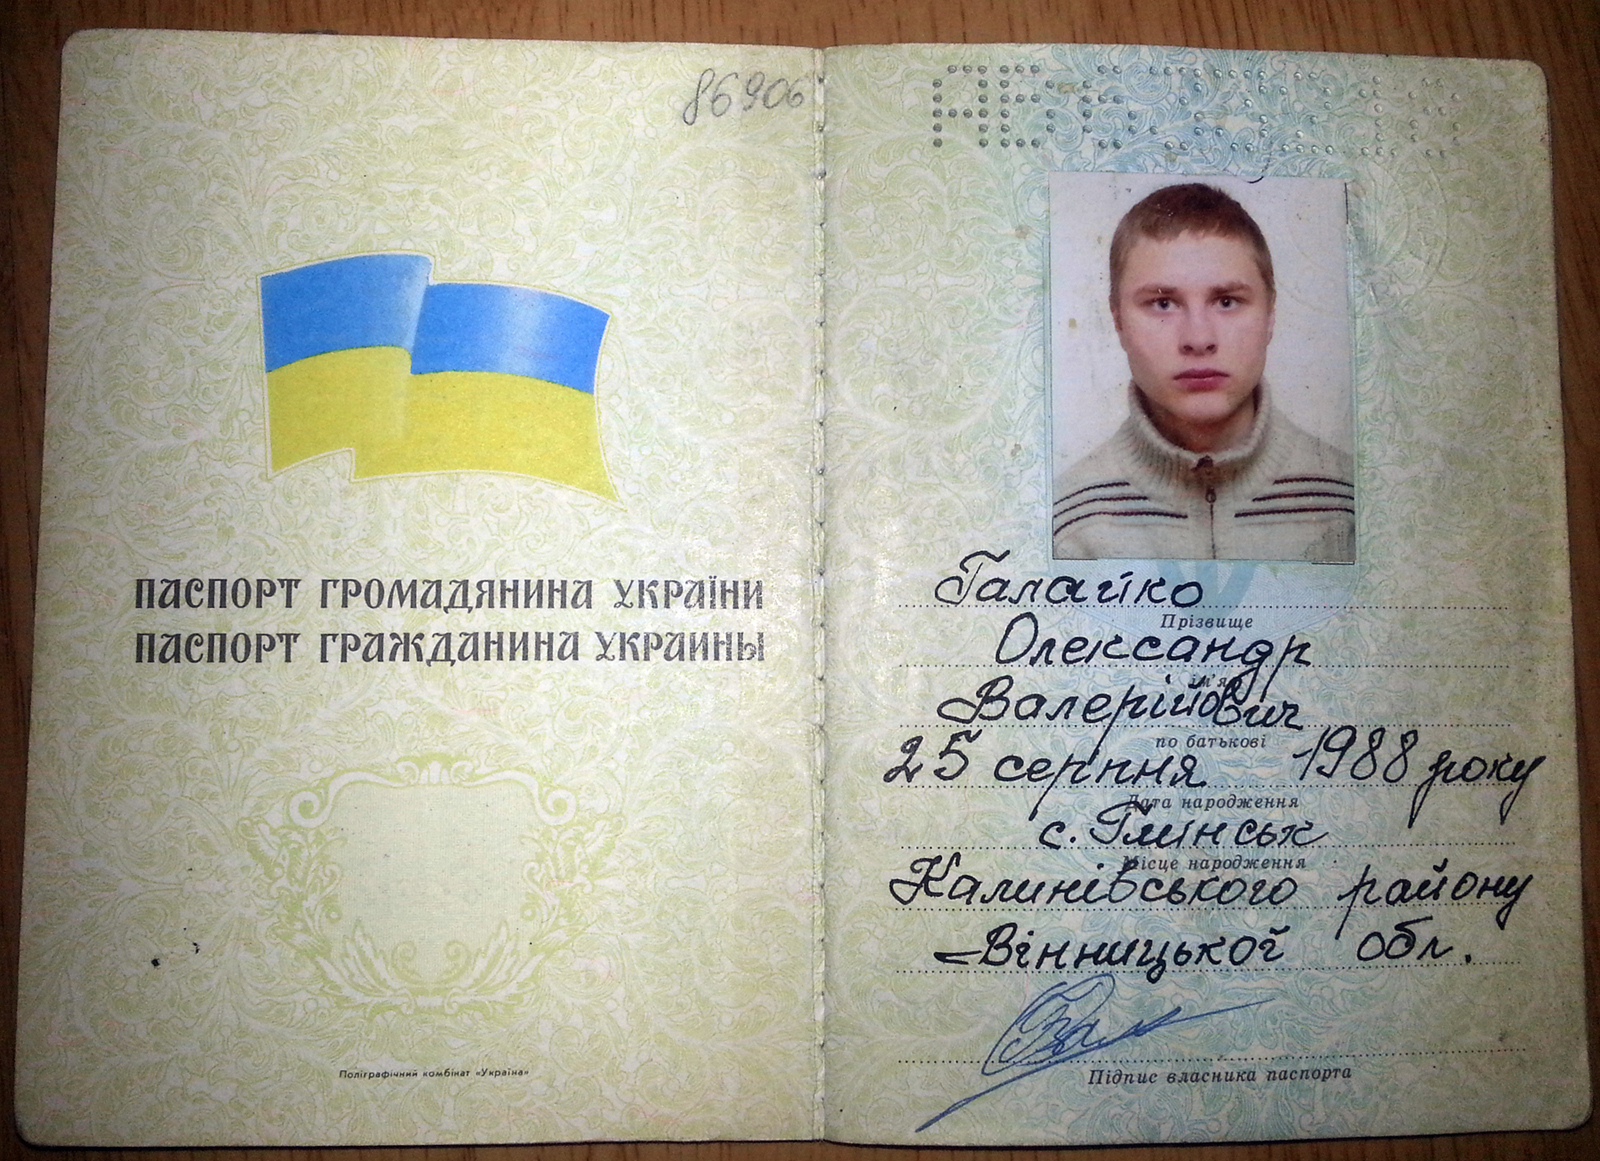 86906
ПАСПОРТ ГРОМАДЯНИНА УКРАЇНИ
ПАСПОРТ ГРАЖДАНИНА УКРАИНЫ
Поліграфічний комбінат «Україна»
Галайко
Прізвище
Олександр
ім'я
Валерійович
по батькові
25 серпня 1988 року
Дата народження
с. Глінськ
Місце народження
Калинівського району
Вінницької обл.
Підпис власника паспорта